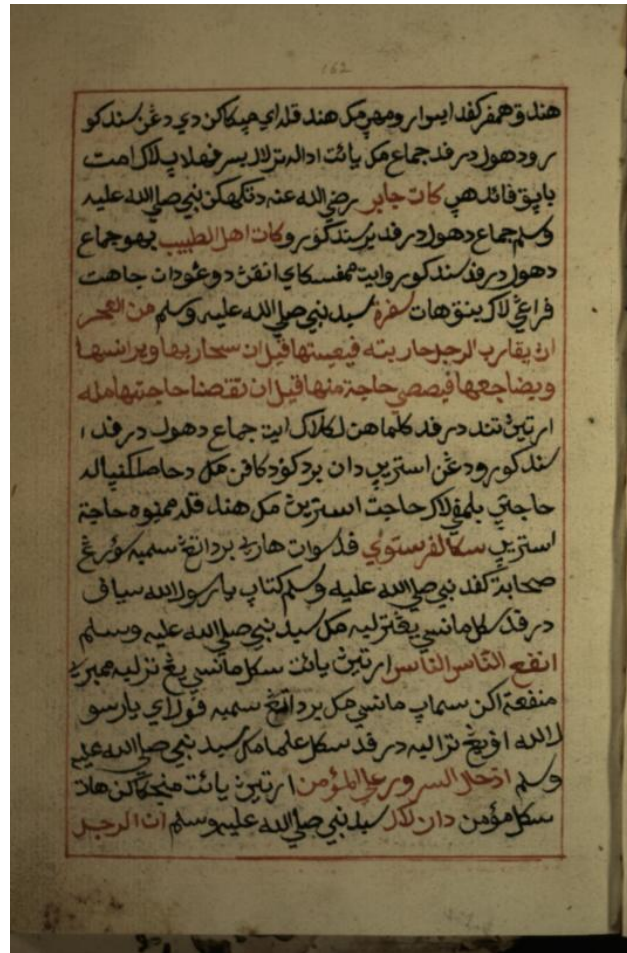 162
هندق همفرکفد ايسوارومهن مک هند قله اي مپکاکن دي دغن سندکو
رودهول درفد جماع مک يائت اداله ترلالـ بسر فهلا لاک امت
باپق فائدهپ کات جابر رضي الله عنه دتگهکن نبي صلي الله عليه
وسلم جماع دهول درفد برسندکورو کات اهل الطبيب بهو جماع
دهول درفد سندکورو ايت ممفسکاي انقڽ دوغو دان جاهت
فراغي لاک بينوهات سفرة سيد نبي صلي الله عليه وسلم من العجر
ان يقارب الرجل حاريته فيصيتها قبل ان سحاربها ويرانسها
ويضاجعها فيصصي حاجة منها قبل ان تقضنا حاجتها مله
ارتيڽ تند درفد کلماهن لکلاک ايت جماع دهول درفد ا
سندکورو دغن استريپ دان بردکودکافن مک دحاصلکنياله
حاجتي بلمفي لاک حاجت استريڽ مک هند قله ممنوه حاجة
استريپ سکالفرستوي فد سوات هاري برداتغ سميه سؤرغ
صحابة کفد نبي صلي الله عليه وسلم کتاپ يارسول الله سياف
درفد سکل مانسي يغترليه مک سيد نبي صلي الله عليه وسلم
انفع الناس الناس ارتيڽ يائت سکل مانسي يغ ترليه ممبري
منفعة اکن سماپ مانسي مک برداتغ سميه فولاي يارسو
لالله افيغ ترليه درفد سکل علما مک سيد نبي صلي الله عليه
وسلم ادخال السرور علي المؤمن ارتيڽ يائت منجکاکن هات
سکل مؤمن دان لاک سيد نبي صلي الله عليه وسلم ان الرجل